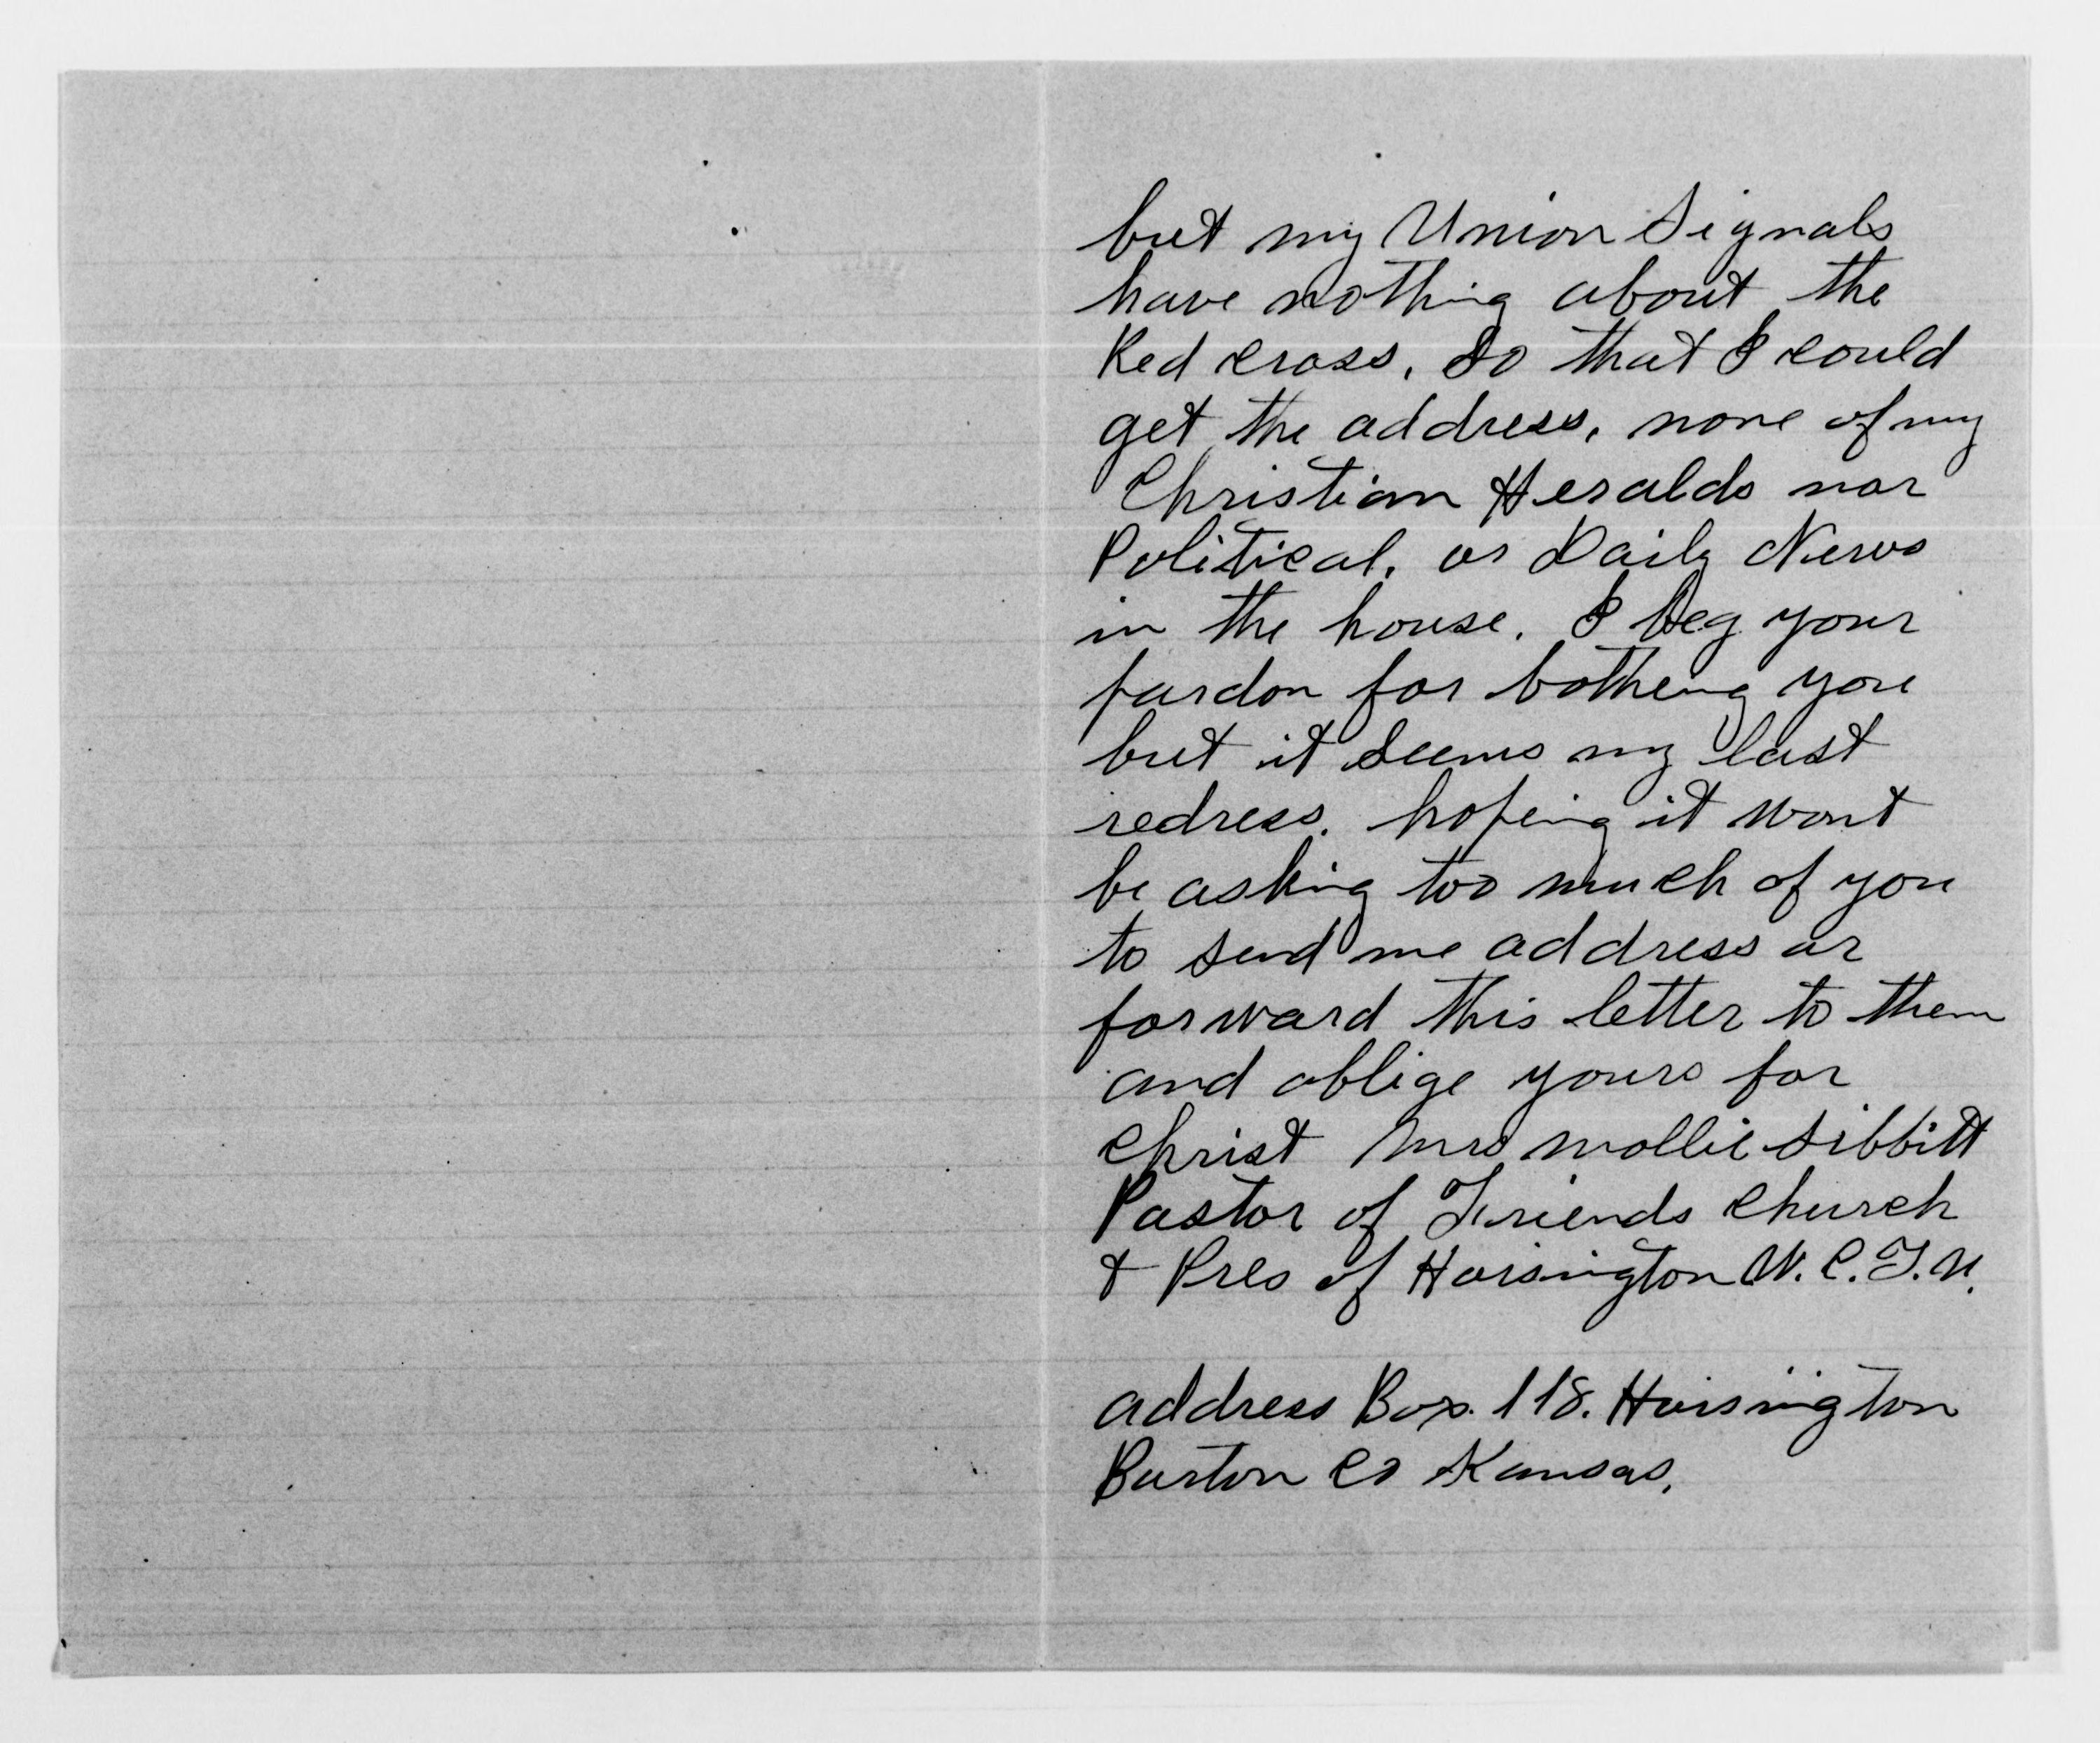 but my Union Signals
have nothing about the
Red Cross, So that I could
get the address, none of my
Christian Heralds nor
Political, or Daily News
in the house. I beg your
pardon for botheing you
but it seems my last
redress. hoping it wont
be asking too much of you
to send me address or
forward this letter to them
and oblige yours for
Christ Mrs Mollie Sibbitt
Pastor of Friends Church
& Pres of Hoisington W.C.T.U.
address Box 118. Hoisington
Barton Co Kansas.